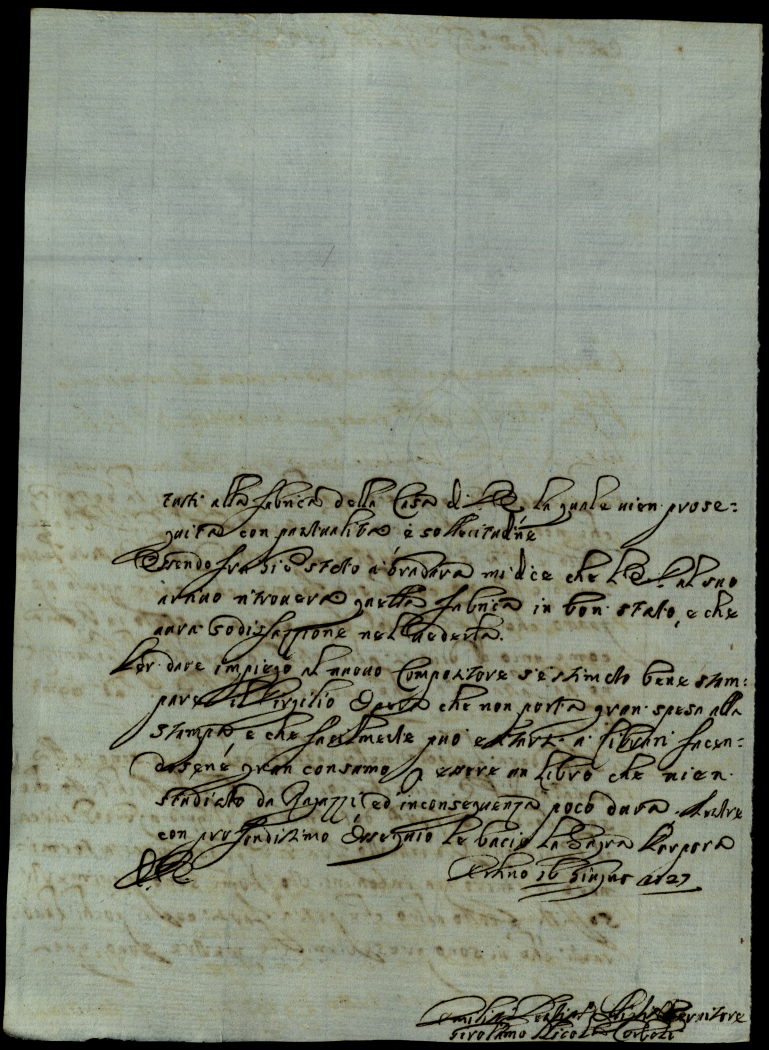 tutti alla fabrica della Casa di V.E. la quale vien prose=
guita con puntualità e sollecitudine
Essendo fra Gio stato a bradara mi dice che V.E. al suo
arrivo ritroverà quella fabrica in bon stato, e che
avrà sodisfazione nel vederla.
Per dare impiego al nuovo Compositore s'è stimato bene stam=
pare il Virgilio Opera che non porta gran spesa alla
stampa e che facilmente può a' librari facen=
dosene gran consumo p essere un libro che vien
studiato da Ragazzi ed in conseguenza poco dura. Mentre
con profondissimo Ossequio le bacio la Sagra Porpora
Urbino 16 Giugno 1727
Servitore
Girolamo Nicolò